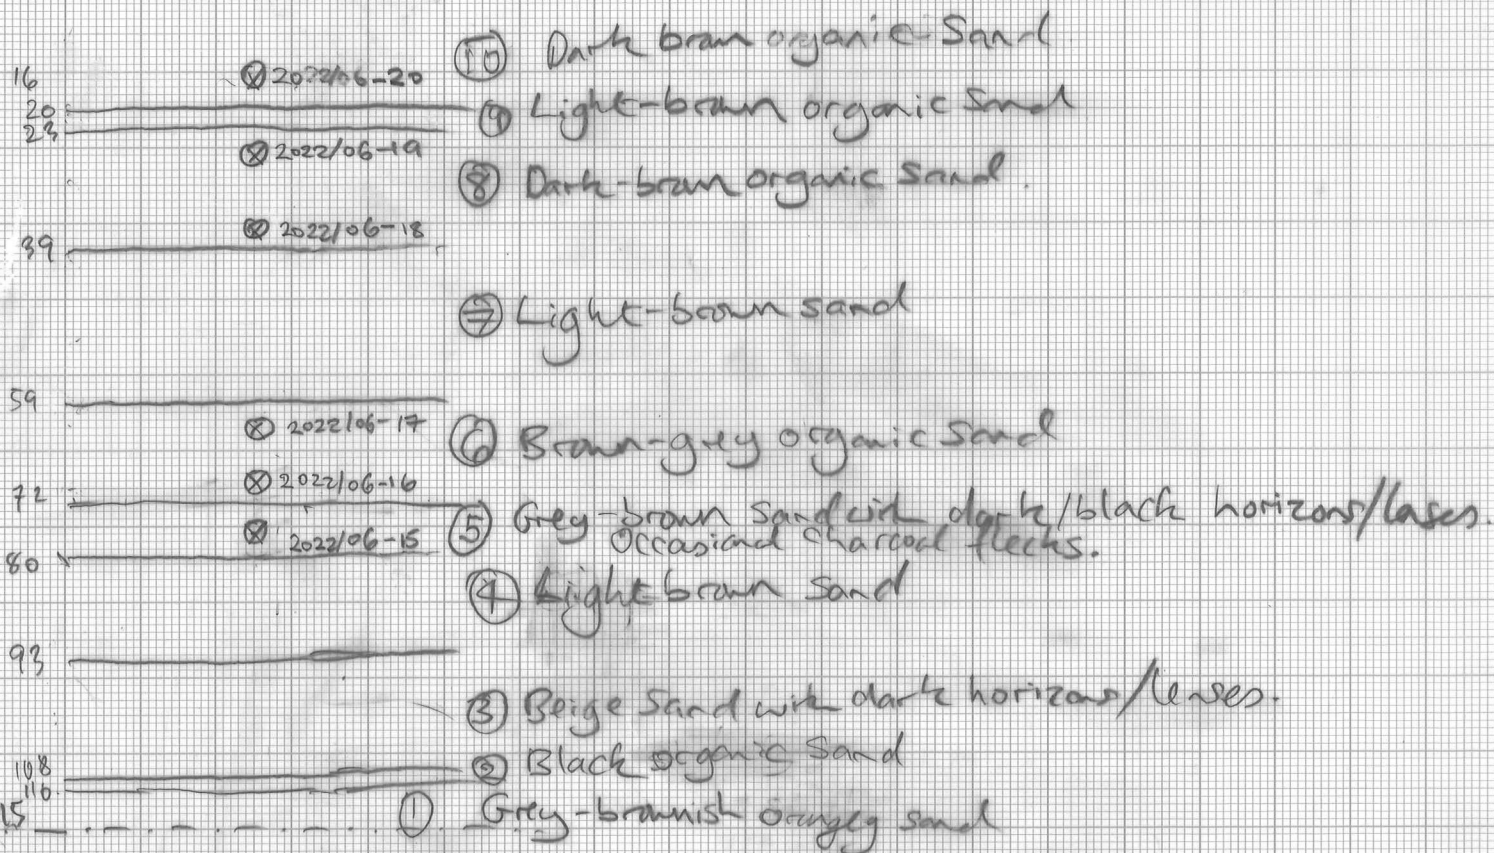 ⑩ Dark brown organic Sand
16 ⊗ 2022/06-20
20 ⑨ Light-brown organic Sand
23
⊗ 2022/06-19
⑧ Dark-brown organic sand.
⊗ 2022/06-18
39
⑦ Light-brown sand
59
⊗ 2022/06-17
⑥ Brown-grey organic Sand
⊗ 2022/06-16
72
⑤ Grey-brown sand with dark/black horizons/lenses.
⊗ 2022/06-15 Occasional charcoal flecks.
80
④ Light brown sand
93
③ Beige Sand with dark horizons/lenses.
108 ② Black organic sand
110
① Grey-brownish orangey sand